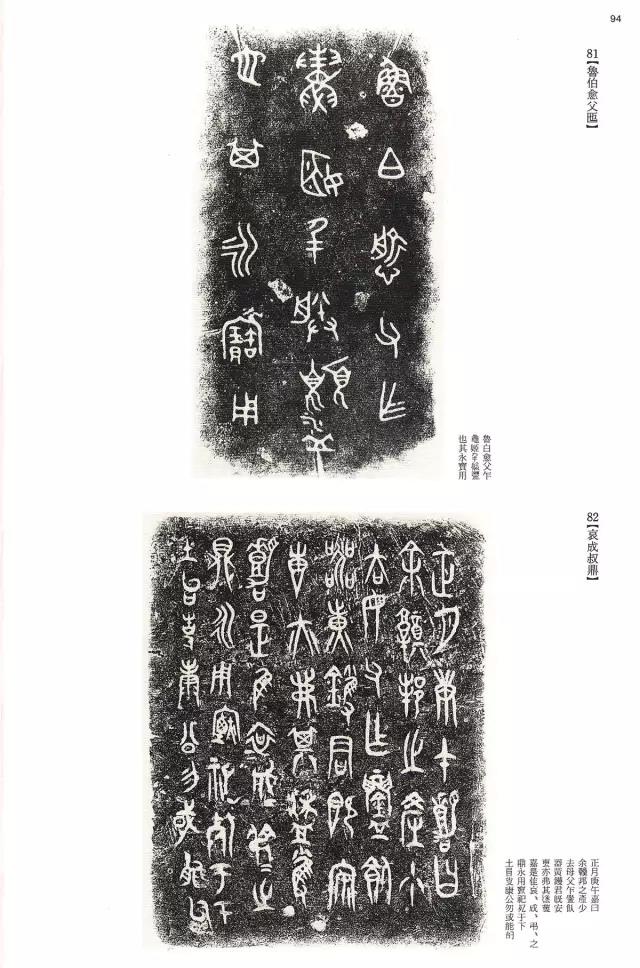 94
81【魯伯愈父匜】
魯白愈父乍
也其永寶用
82【哀成叔鼎】
正月庚午嘉曰
余鄭邦之產少
去母父乍鑄飤
器黃鑊君既安
叀亦弗其
嘉是隹哀成弔之
鼎永用禋祀于下
土台事康公勿或能